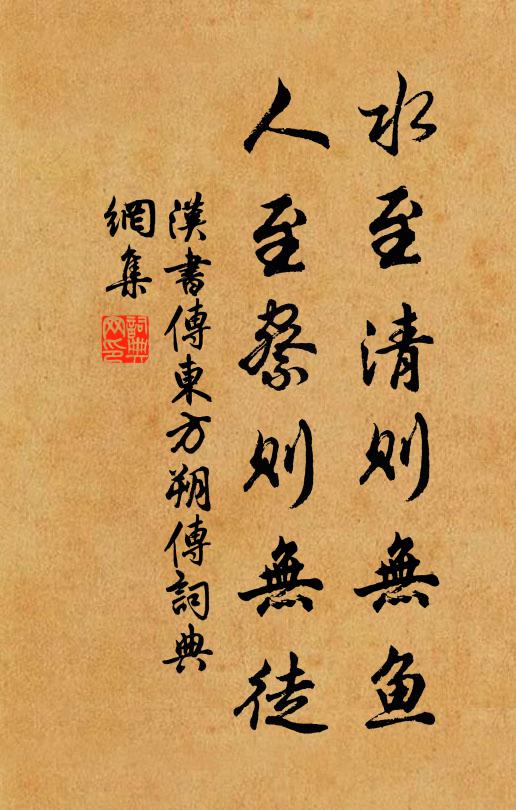 水至清则無鱼
人至察则無徒
漢書傳東方朔傳詞典
網集
詞典
网印